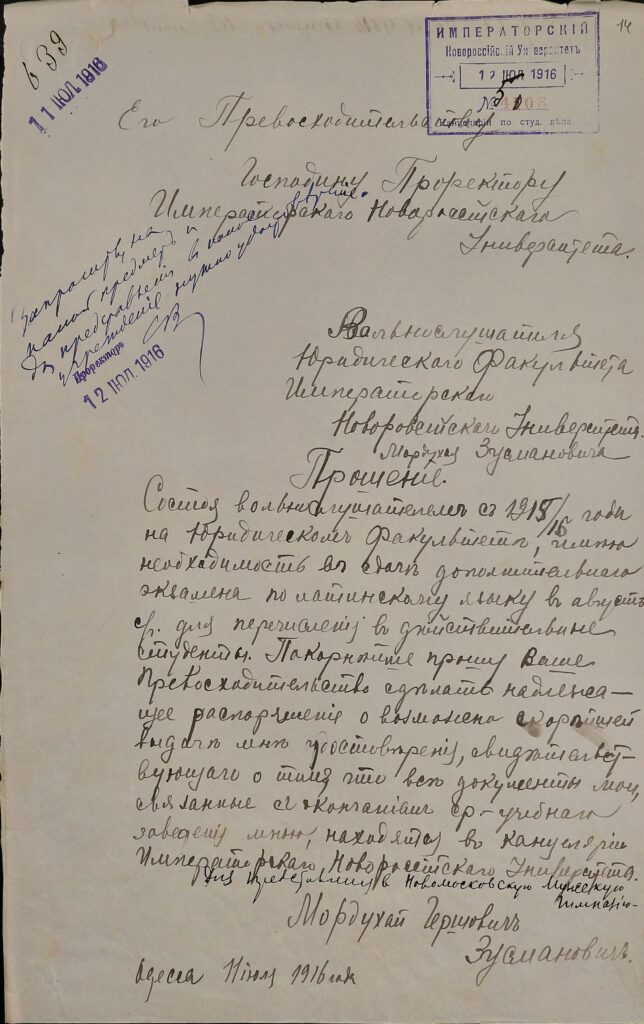 639
11 ІЮЛ 1916
14
ИМПЕРАТОРСКІЙ
Новороссійскій Университетъ
12 ІЮЛ 1916
№
по студ. дѣла
Его Превосходительству
Господину Проректору
Императорскаго Новороссійскаго
Университета.
Проректоръ
12 ІЮЛ 1916
Вальнослушателя
Юридическаго Факультета
Императорскаго
Новоросейскаго Университета.
Мордухая Зусмановича
Прошеніе.
Состоя вольнослушателемъ съ 1915/16 года
на Юридическомъ Факультетѣ, имѣю
необходимость въ сдачѣ дополнительнаго
экзамена по латинскому языку въ августѣ
с/г. для перечисленія въ дѣйствительные
студенты. Покорнѣйше прошу Ваше
Превосходительство сдѣлать надлежа-
щее распоряженіе о возможно скорѣйшей
выдачѣ мнѣ удостовѣренія, свидѣтельст-
вующаго о томъ что всѣ документы мои,
связанные съ окончаніемъ ср.-учебнаго
заведенія мною, находятся въ канцеляріи
Императорскаго Новороссійскаго Университета.
для представленія въ Новомосковскую Мужскую
Гимназію-
Мордухай Гершовичъ
Зусмановичъ.
Одесса 11 іюля 1916 года